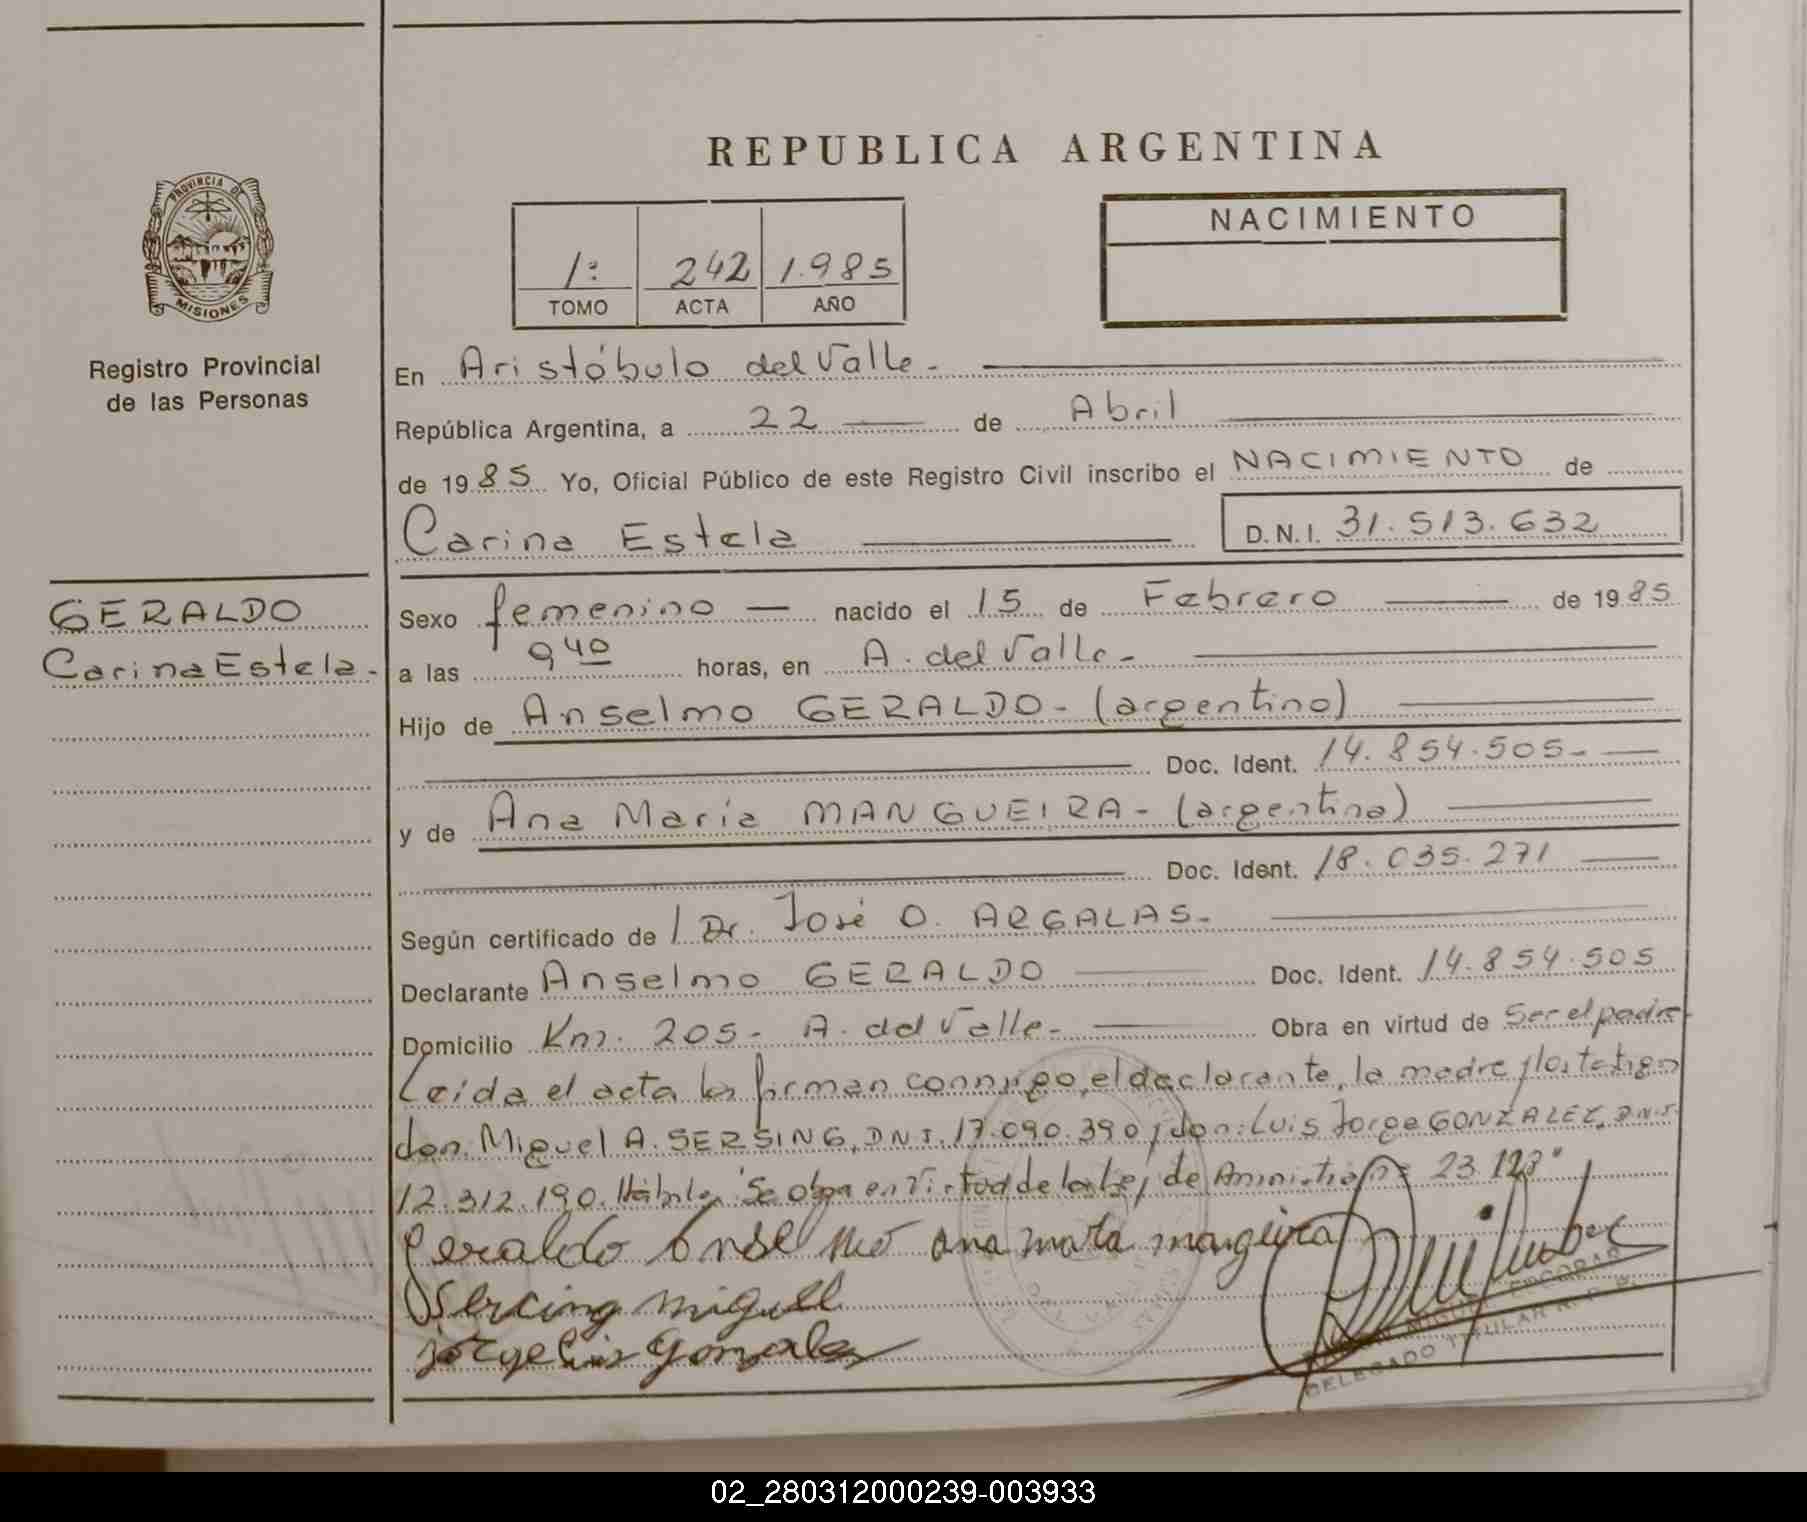 REPUBLICA ARGENTINA
PROVINCIA DE
MISIONES
Registro Provincial
de las Personas
1:
242
1.985
TOMO
ACTA
AÑO
NACIMIENTO
En Aristóbulo del Valle.
República Argentina, a 22 de Abril
de 1985 Yo, Oficial Público de este Registro Civil inscribo el NACIMIENTO de
Carina Estela D.N.I. 31.513.632
GERALDO
Carina Estela.
Sexo femenino nacido el 15 de Febrero de 1985
a las 9 40 horas, en A. del Valle.
Hijo de Anselmo GERALDO - (argentino)
Doc. Ident. 14.854.505.
y de Ana María MANGUEIRA - (argentina)
Doc. Ident. 18.035.271
Según certificado de / Dr. José O. ARGALAS.
Declarante Anselmo GERALDO Doc. Ident. 14.854.505
Domicilio Km. 205. A. del Valle. Obra en virtud de Ser el padre.
Leida el acta la firman conmigo, el declarante, la madre y los testigos
don. Miguel A. SERSING, D.N.I. 17.090.390 y don: Luis Jorge GONZALEZ, D.N.I.
12.312.190. Hábiles "Se obra en Virtud de la Ley de 23.128"
Geraldo Anselmo ana maria mangeira
Sercing miguel
jorge luis Gonzales
ESCOBAR
DELEGADO TITULAR R. P. P.
02_280312000239-003933